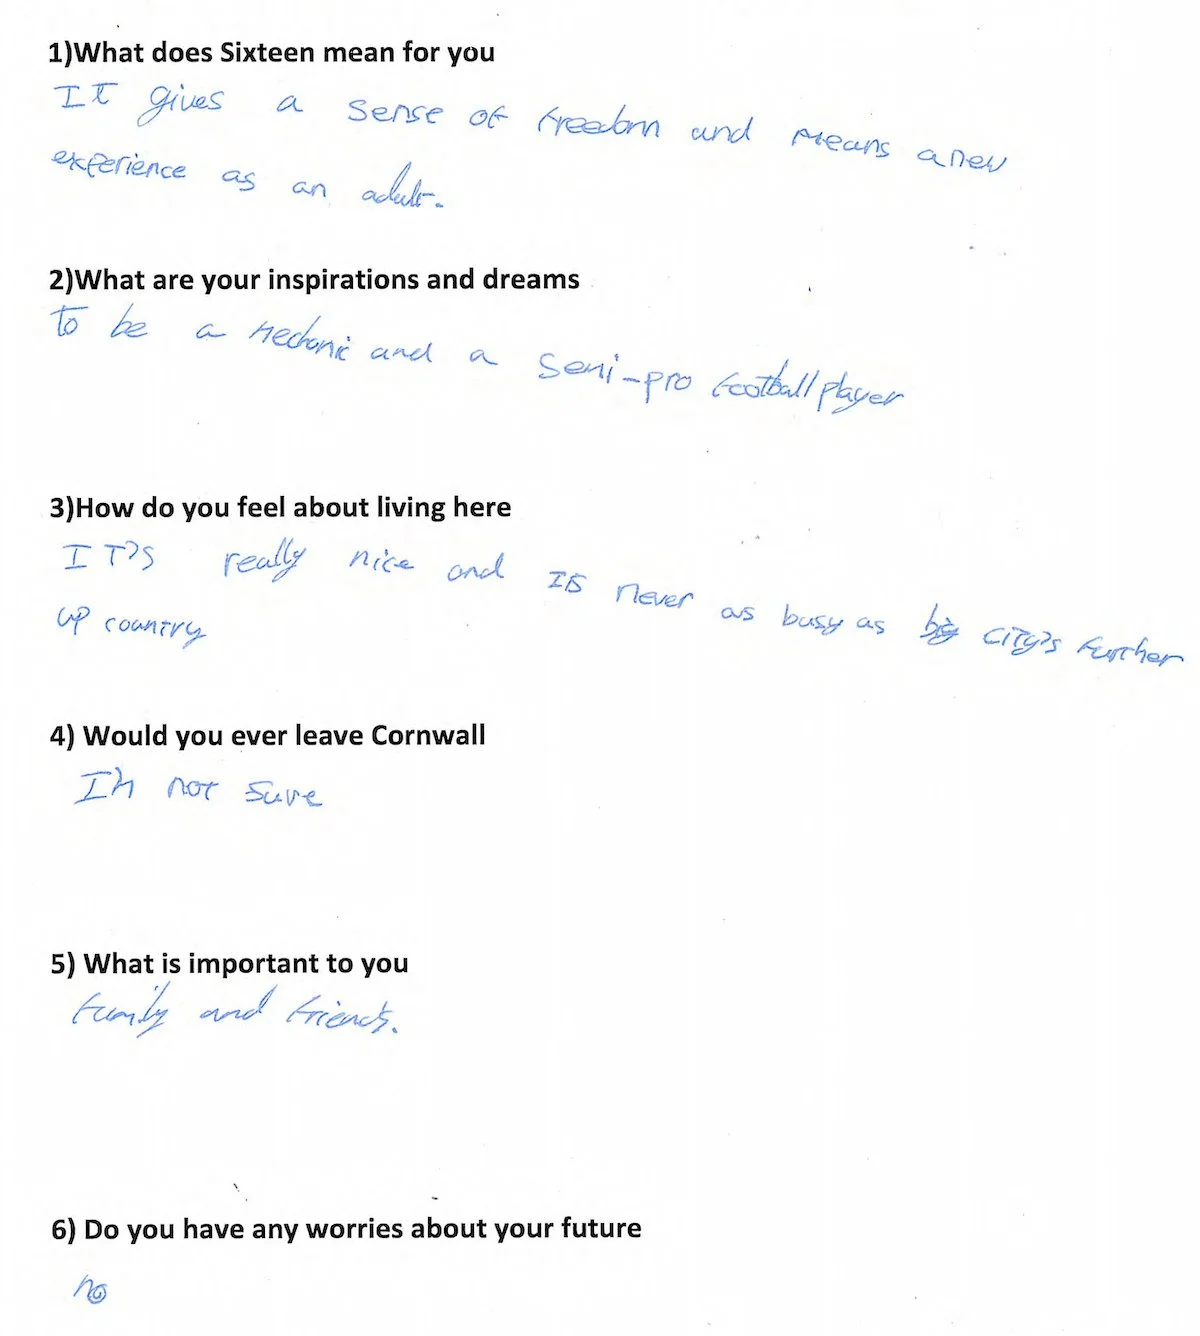 1)What does Sixteen mean for you
It gives a sense of freedom and means a new
experience as an adult.
2)What are your inspirations and dreams
To be a mechanic and a semi-pro football player
3)How do you feel about living here
IT's really nice and IS never as busy as big city's further
up country
4) Would you ever leave Cornwall
I'm not sure
5) What is important to you
Family and friends.
6) Do you have any worries about your future
no